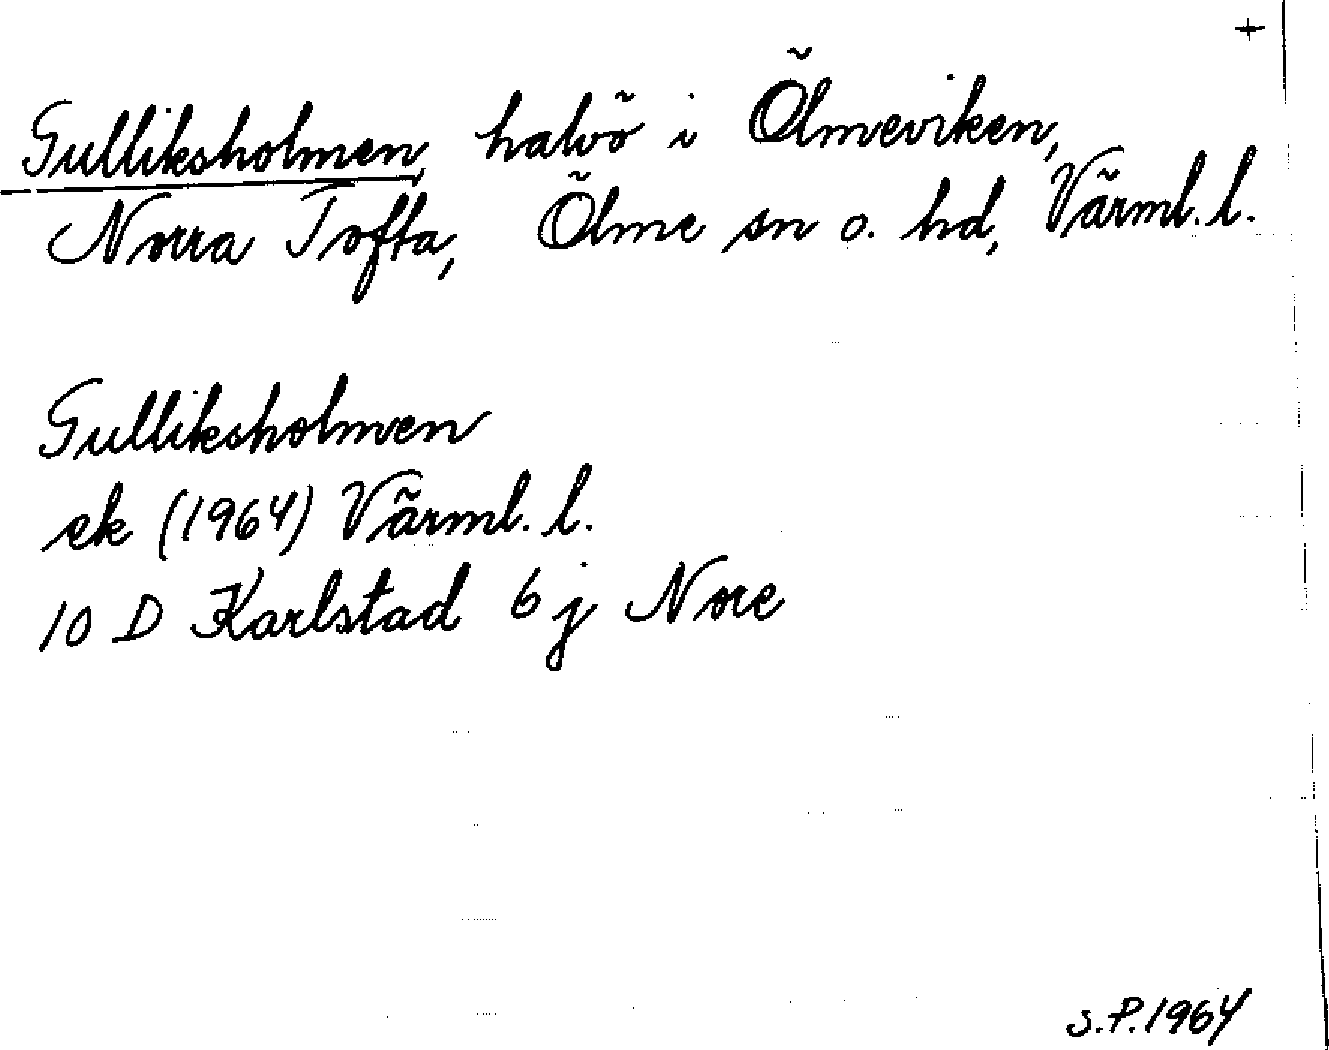 +
Gulliksholmen, halvö i Ölmeviken,
Norra Tofta, Ölme sn o. hd, Värml. l.
Gulliksholmen
ek (1964) Värml. l.
10 D Karlstad 6 j Nore
S.P. 1964